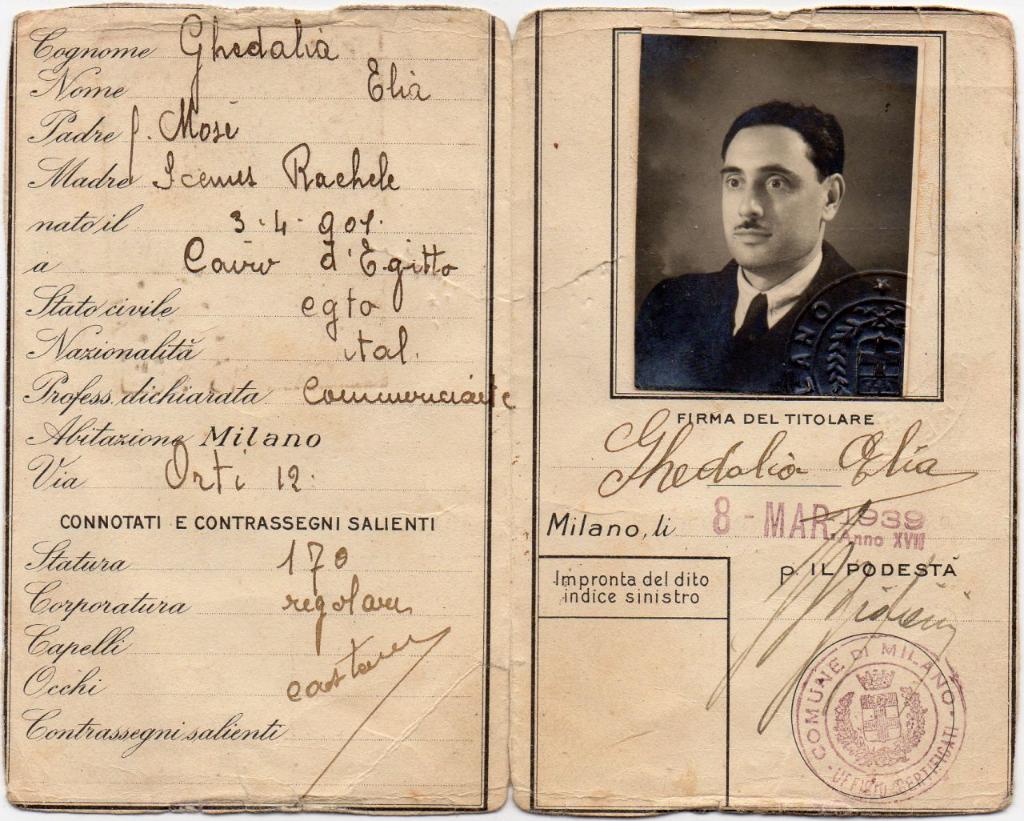 Cognome Ghedalià
Nome Elia
Padre f. Mosè
Madre Rachele
nato il 3-4-901.
a Cairo d'Egitto
Stato civile cgto
Nazionalità ital.
Profess. dichiarata commerciante
Abitazione Milano
Via Orti 12.
CONNOTATI E CONTRASSEGNI SALIENTI
Statura 170
Corporatura regolare
Capelli
Occhi castani
Contrassegni salienti
FIRMA DEL TITOLARE
Ghedalià Elia
Milano, li 8 - MAR. 1939
Anno XVII
p. IL PODESTÀ
Impronta del dito
indice sinistro
COMUNE DI MILANO
UFFIZIO CERTIFICATI